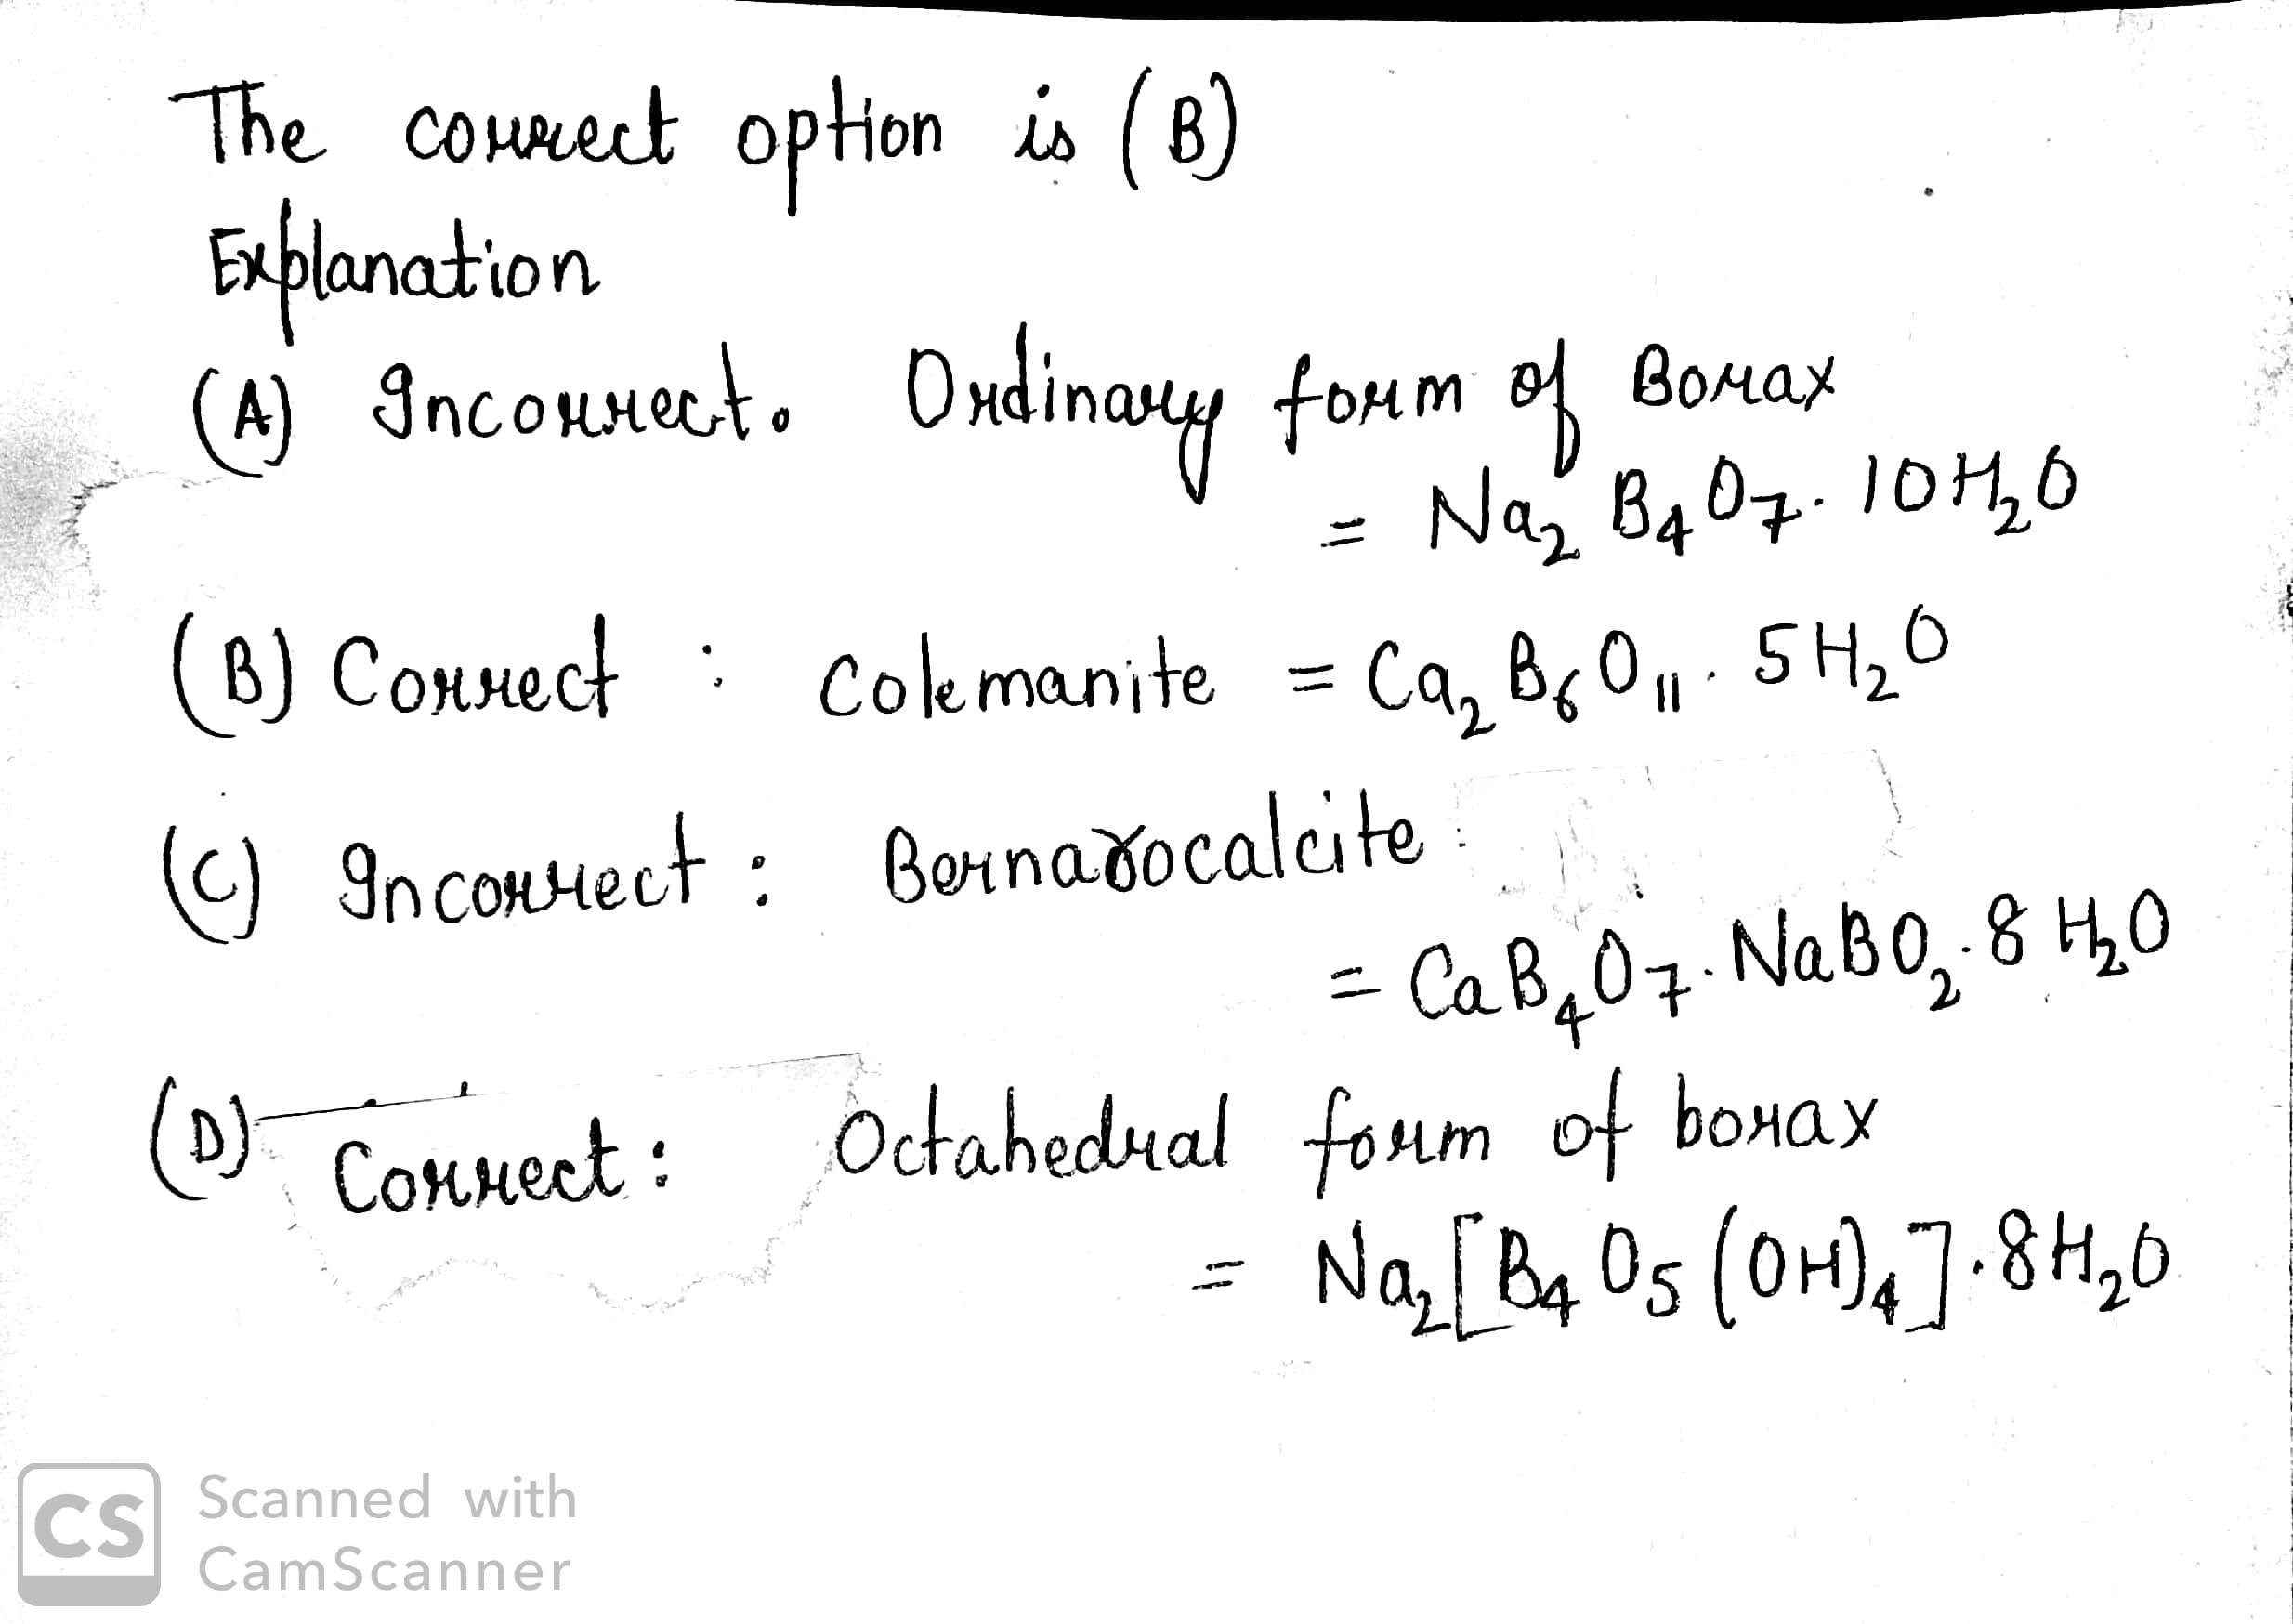 The correct option is (B)
Explanation
(A) Incorrect. Ordinary form of Borax
= Na₂ B₄ O₇. 10H₂O
(B) Correct : Colemanite = Ca₂ B₆ O₁₁. 5H₂O
(C) Incorrect : Bornarocalcite
= CaB₄O₇. NaBO₂. 8 H₂O
(D) Correct : Octahedral form of borax
= Na₂ [B₄ O₅ (OH)₄]. 8H₂O
CS Scanned with
CamScanner